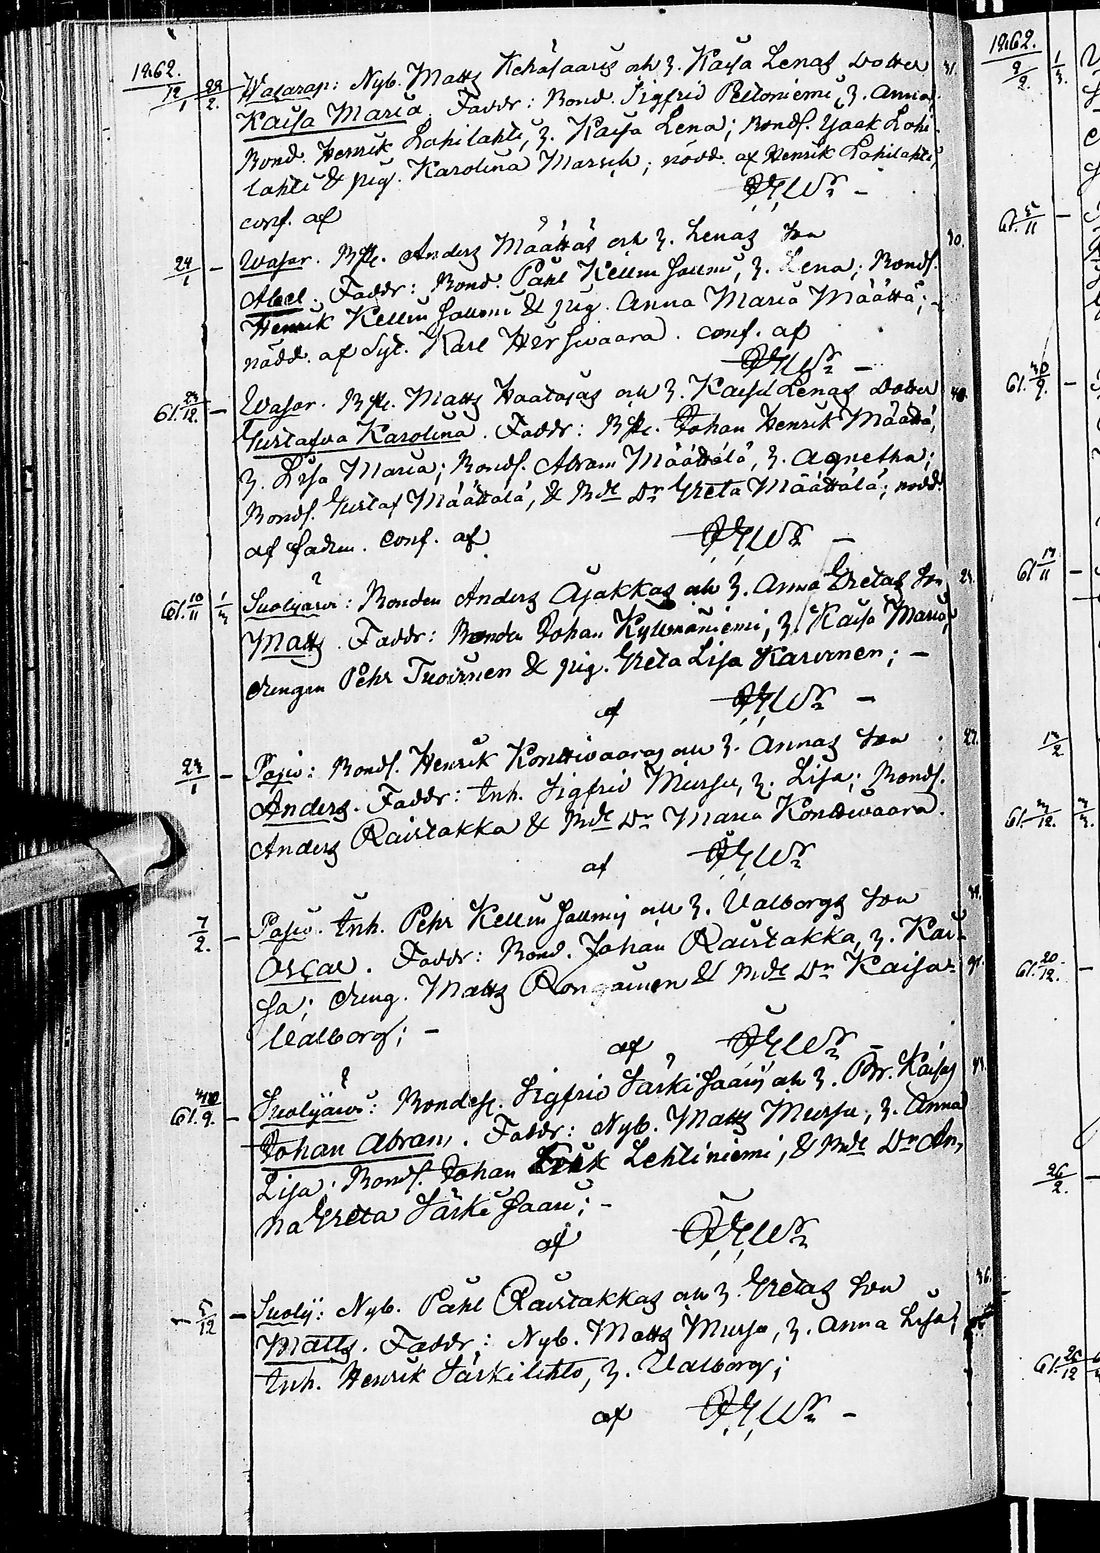 1862.
12/1 28/2. Wasarap: Nyb. Matts Kehäsaaris och h. Kaisa Lenas Dotter 31.
Kaisa Maria. Faddr: Bond. Sigfrid Peltoniemi, h. Anna;
Bond. Henrik Lohilahti, h. Kaisa Lena; Bonds. Isak Lohi-
lahti & pig. Karolina Marsch; nödd. af Henrik Lohilahti,
conf. af
24/1 – Wasar. Anders Määttäs och h. Lenas Son 30.
Abel. Faddr: Bond. Påhl Kellin Sallmi, h. Lena; Bonds.
Henrik Kellin Salmi & pig. Anna Maria Määttä;
nödd. af Karl Hirswaara. conf. af
61. 23/12. – Wasar. Matts Haatajas och h. Kaisa Lenas Dotter 40.
Gustafva Karolina. Faddr: Johan Henrik Määttä,
h. Lisa Maria; Bonds. Abram Määttälä, h. Agnetha;
Bonds. Gustaf Määttälä, & Bde Dr Greta Määttälä; nödd.
af fadren. conf. af
61. 10/11 1/3 Suolijärvi: Bonden Anders Ajakkas och h. Anna Gretas Son 24.
Matts. Faddr: Bonden Johan Kyllmäniemi, h. Kaisa Maria;
drengen Pehr Tuovinen & pig. Greta Lisa Karvinen; –
af
23/1 – Posio: Bonds. Henrik Konttiwaaras och h. Annas Son 27.
Anders. Faddr: Inh. Sigfrid Mursu, h. Lisa; Bonds.
Anders Raistakka & Bde Dr Maria Konttiwaara.
af
7/2. – Posio. Inh. Pehr Kellin Sallmis och h. Valborgs Son
Oscar. Faddr: Bond. Johan Raistakka, h. Kai-
sa; dreng. Matts Rongainen & Bde Dr Kaisa
Valborg; –
af
61. /9. – Suolijärvi: Bondes. Sigfrid Särki Saaris och h. Br. Kaisas
Johan Abram. Faddr: Nyb. Matts Mursu, h. Anna
Lisa; Bonds. Johan Erik Lehtiniemi, & Bde Dr An-
na Greta Särki Saari; –
af
5/12 – Suolij: Nyb. Påhl Raistakkas och h. Gretas Son 36.
Matts. Faddr: Nyb. Matts Mursu, h. Anna Lisa;
Inh. Henrik Särkilehto, h. Valborg;
af
1862.
9/2. 1/3.
61. 5/11 –
61. 30/9. –
61. 17/11 –
12/2
61. /12. /3.
61. 20/12. –
26/2. –
61. 26/12